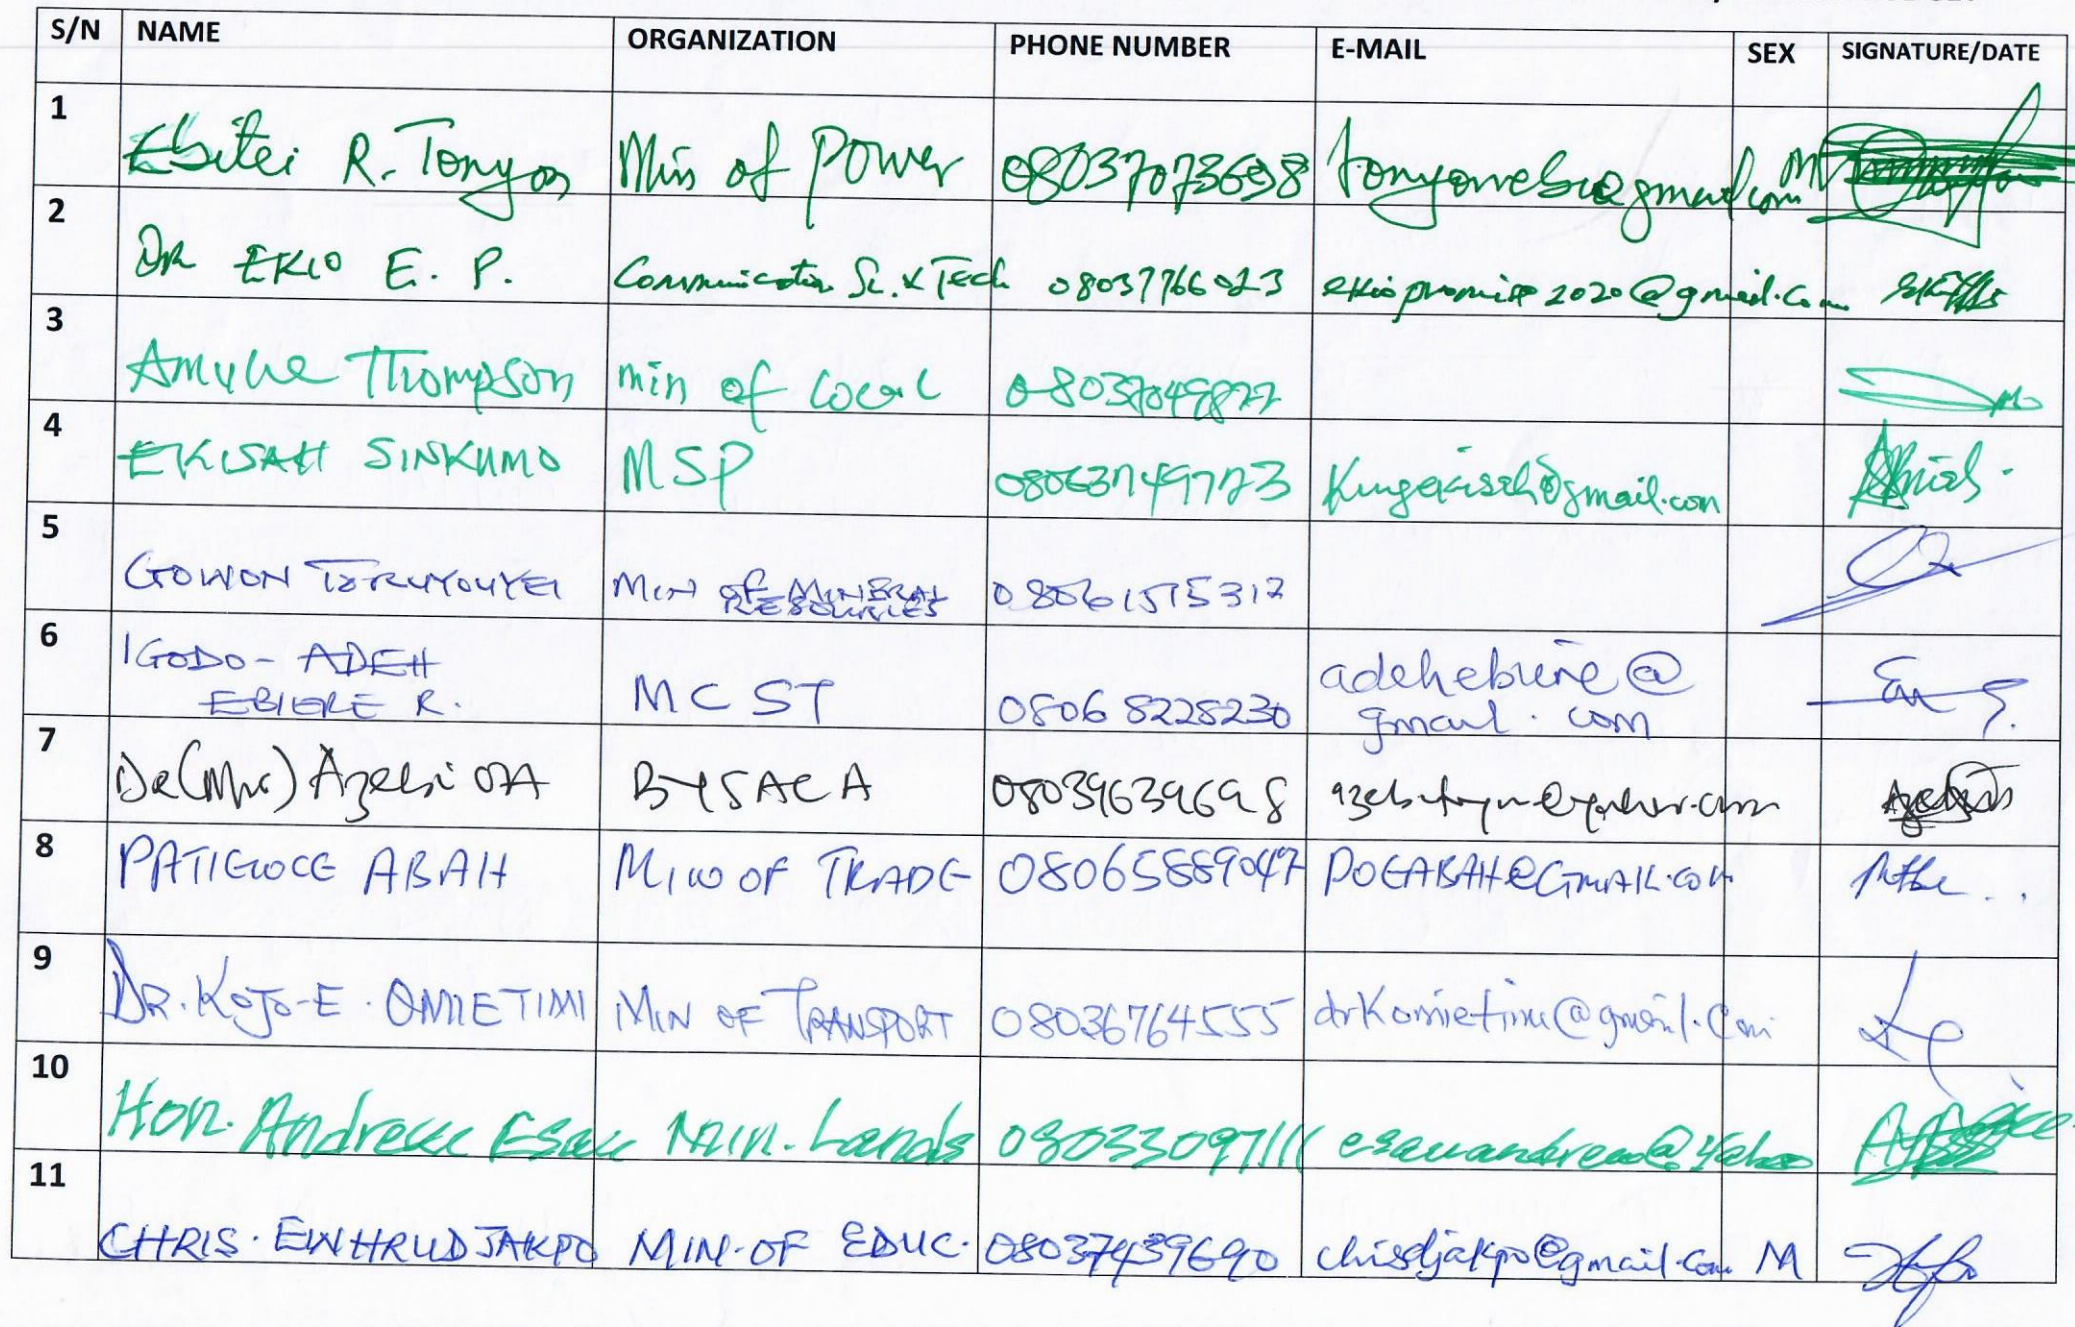 S/N NAME ORGANIZATION PHONE NUMBER E-MAIL SEX SIGNATURE/DATE
1 Ebitei R. Min of Power M
2 DR EKIO E. P. Communication Sc. & Tech 08037766023 ekiopromise2020@gmail.com
3 Thompson min of Local
4 EKISAH SINKUMO MSP
5 GOWON MIN OF MINERAL
RESOURCES 08061515312
6 IGODO-ADEH
EBIERE R. MCST 08068228230 adehebiere@
gmail.com
7 Dr(Mrs) Azebi BYSACA 08039639698
8 ABAH MIN OF TRADE 08065889047 POEABAH@GMAIL.COM
9 DR. KOJO-E. OMIETIMI MIN OF TRANSPORT 08036764555 drkomietimi@gmail.com
10 Hon. Andrew Esau Min. Lands 08033097111 esauandrew@yahoo
11 CHRIS. EWHRUDJAKPO MIN. OF EDUC. 08037439690 chrisdjakpo@gmail.com M